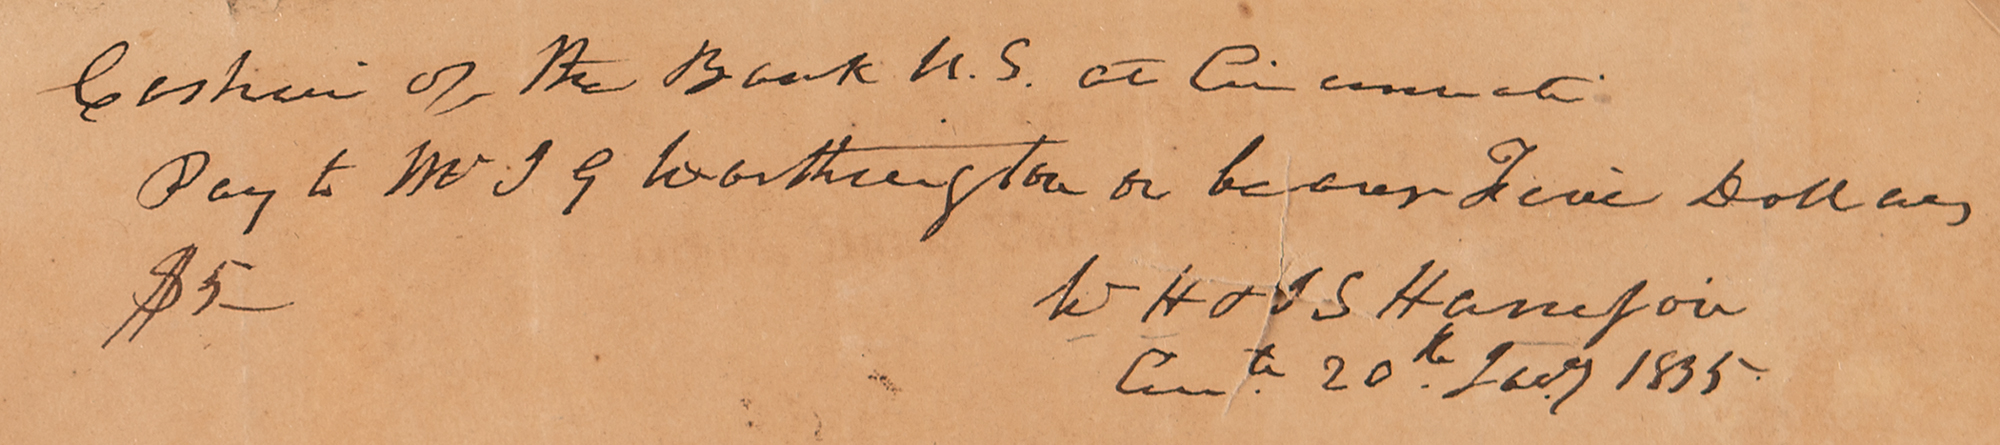 Cashier of the Bank U.S. at Cincinnati
Pay to Mr J G Worthington or bearer Five Dollars
$5
W H & J S Harrison
Cinti. 20th Jany 1835